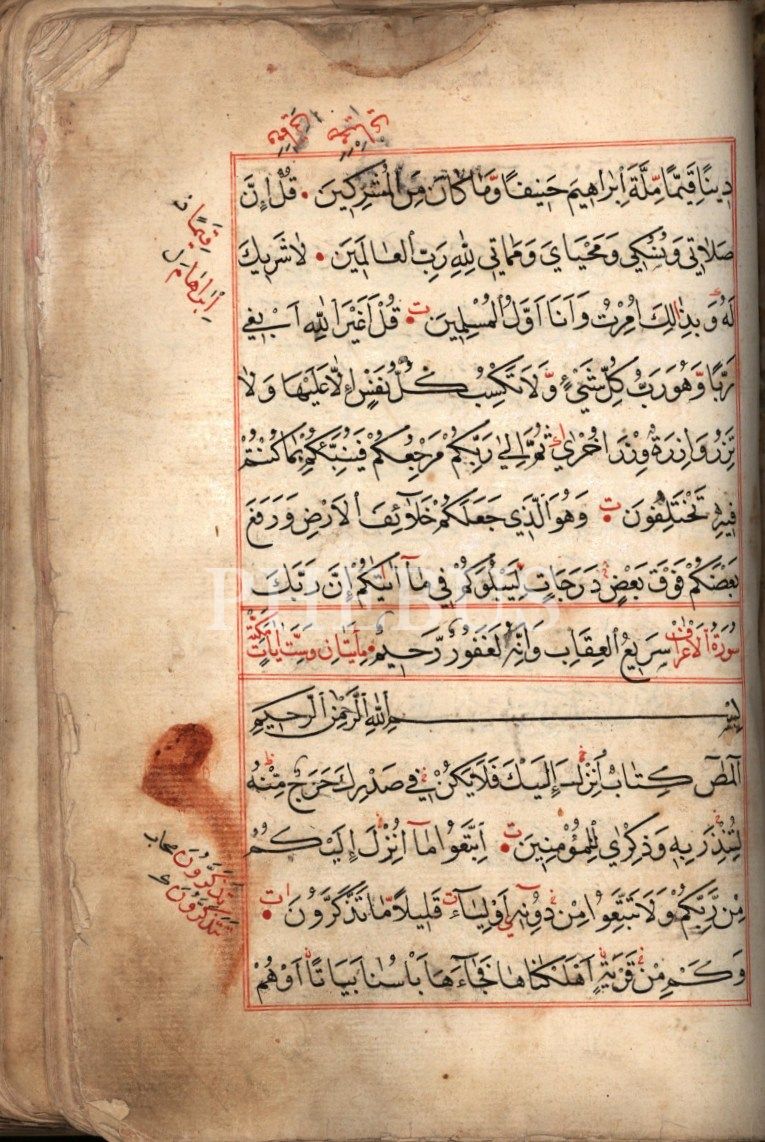 دِينًا قَيِّمًا مِّلَّةَ اِبْرَاهِيمَ حَنِيفًا وَّمَا كَانَ مِنَ الْمُشْرِكِينَ ۰ قُلْ اِنَّ
صَلَاتِي وَنُسُكِي وَمَحْيَايَ وَمَمَاتِي لِلّٰهِ رَبِّ الْعَالَمِينَ ۰ لَا شَرِيكَ
لَهُ وَبِذَالِكَ اُمِرْتُ وَاَنَا اَوَّلُ الْمُسْلِمِينَ ۰ قُلْ اَغَيْرَ اللّٰهِ اَبْغِي
رَبًّا وَّهُوَ رَبُّ كُلِّ شَيْءٍ وَّلَا تَكْسِبُ كُلُّ نَفْسٍ اِلَّا عَلَيْهَا وَلَا
تَزِرُ وَازِرَةٌ وِّزْرَ اُخْرٰي ثُمَّ اِلٰي رَبِّكُمْ مَرْجِعُكُمْ فَيُنَبِّئُكُمْ بِمَا كُنْتُمْ
فِيهِ تَخْتَلِفُونَ ۰ وَهُوَ الَّذِي جَعَلَكُمْ خَلَآئِفَ الْاَرْضِ وَرَفَعَ
بَعْضَكُمْ فَوْقَ بَعْضٍ دَرَجَاتٍ لِّيَبْلُوَكُمْ فِي مَآ اٰتٰيكُمْ اِنَّ رَبَّكَ
سُورَةُ الْاَعْرَافِ سَرِيعُ الْعِقَابِ وَاِنَّهُ لَغَفُورٌ رَّحِيمٌ ۰ مِأَيتَانِ وَسِتُّ اٰيَاتٍ مَكِّيَّة
بِسْمِ اللّٰهِ الرَّحْمٰنِ الرَّحِيمِ
الٓمٓصٓ كِتَابٌ اُنْزِلَ اِلَيْكَ فَلَا يَكُنْ فِي صَدْرِكَ حَرَجٌ مِّنْهُ
لِتُنْذِرَ بِهِ وَذِكْرٰي لِلْمُؤْمِنِينَ ۰ اِتَّبِعُوا مَآ اُنْزِلَ اِلَيْكُمْ
مِنْ رَّبِّكُمْ وَلَا تَتَّبِعُوا مِنْ دُونِهِ اَوْلِيَآءَ قَلِيلًا مَّا تَذَكَّرُونَ ۰
وَكَمْ مِنْ قَرْيَةٍ اَهْلَكْنَاهَا فَجَآءَهَا بَأْسُنَا بَيَاتًا اَوْ هُمْ
قَيِّمًا
اِبْرَاهَامَ
يَتَذَكَّرُونَ
تَذَكَّرُونَ
PHEBUS